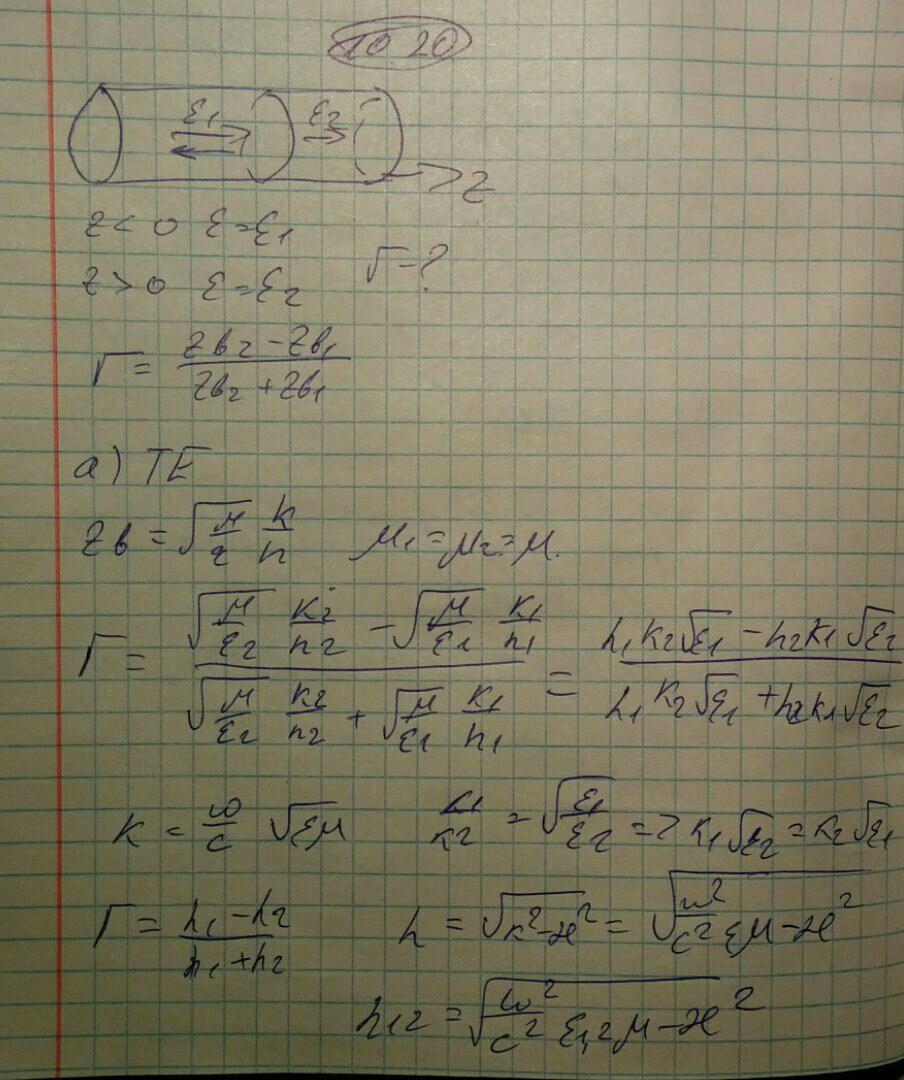 10.20
ε1 ε2
z
z < 0 ε=ε1
z > 0 ε=ε2 Γ-?
Γ = (zв2 - zв1)/(zв2 + zв1)
а) TE
zв = √(μ/ε) k/h μ1 = μ2 = μ.
Γ = (√(μ/ε2) k2/h2 - √(μ/ε1) k1/h1)/(√(μ/ε2) k2/h2 + √(μ/ε1) k1/h1) = (h1 k2 √ε1 - h2 k1 √ε2)/(h1 k2 √ε1 + h2 k1 √ε2)
k = ω/c √εμ k1/k2 = √(ε1/ε2) => k1 √ε2 = k2 √ε1
Γ = (h1 - h2)/(h1 + h2) h = √(k² - æ²) = √(ω²/c² εμ - æ²)
h1,2 = √(ω²/c² ε1,2 μ - æ²)